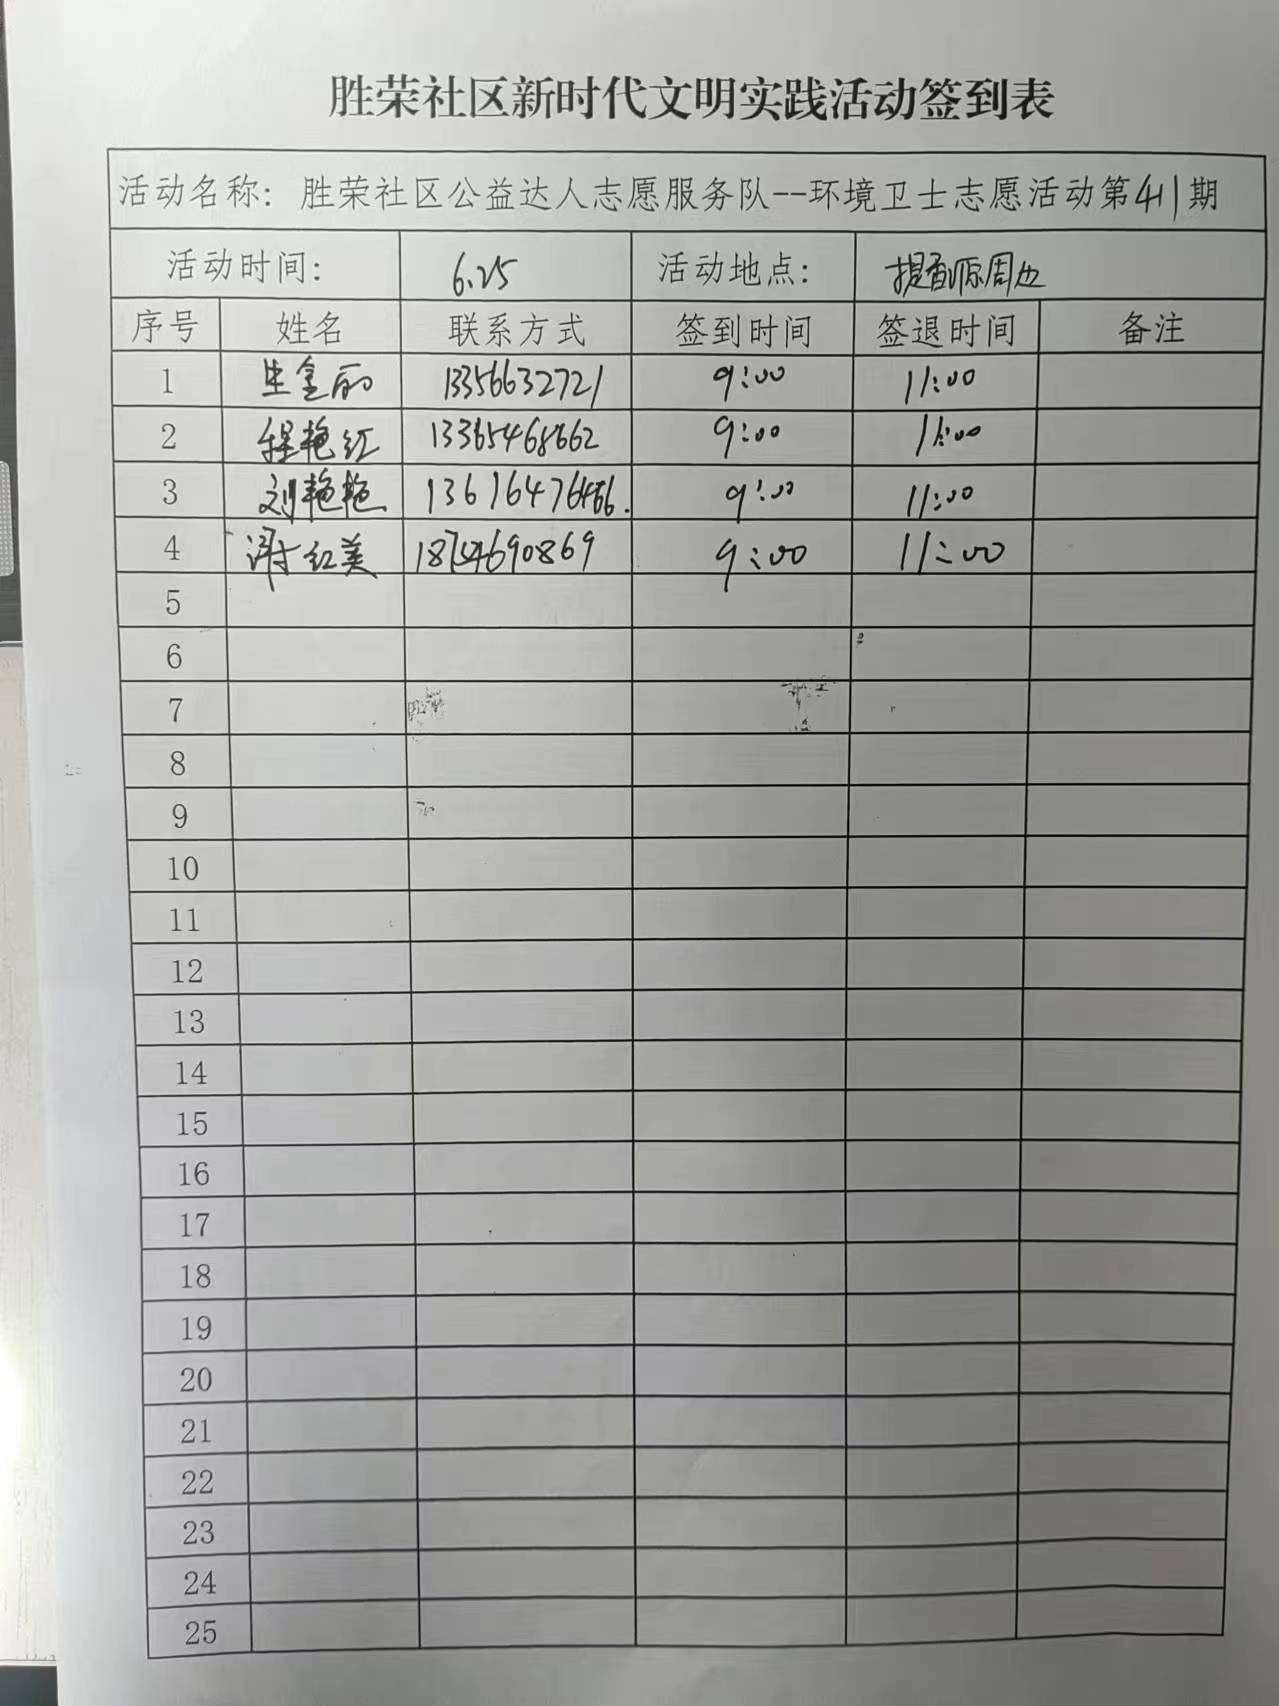 胜荣社区新时代文明实践活动签到表
活动名称：胜荣社区公益达人志愿服务队--环境卫士志愿活动第41期
活动时间： 6.25 活动地点： 周边
序号 姓名 联系方式 签到时间 签退时间 备注
1 13356632721 9:00 11:00
2 程艳红 13365468662 9:00 11:00
3 刘艳艳 9:00 11:00
4 谢红美 9:00 11:00
5
6
7
8
9
10
11
12
13
14
15
16
17
18
19
20
21
22
23
24
25